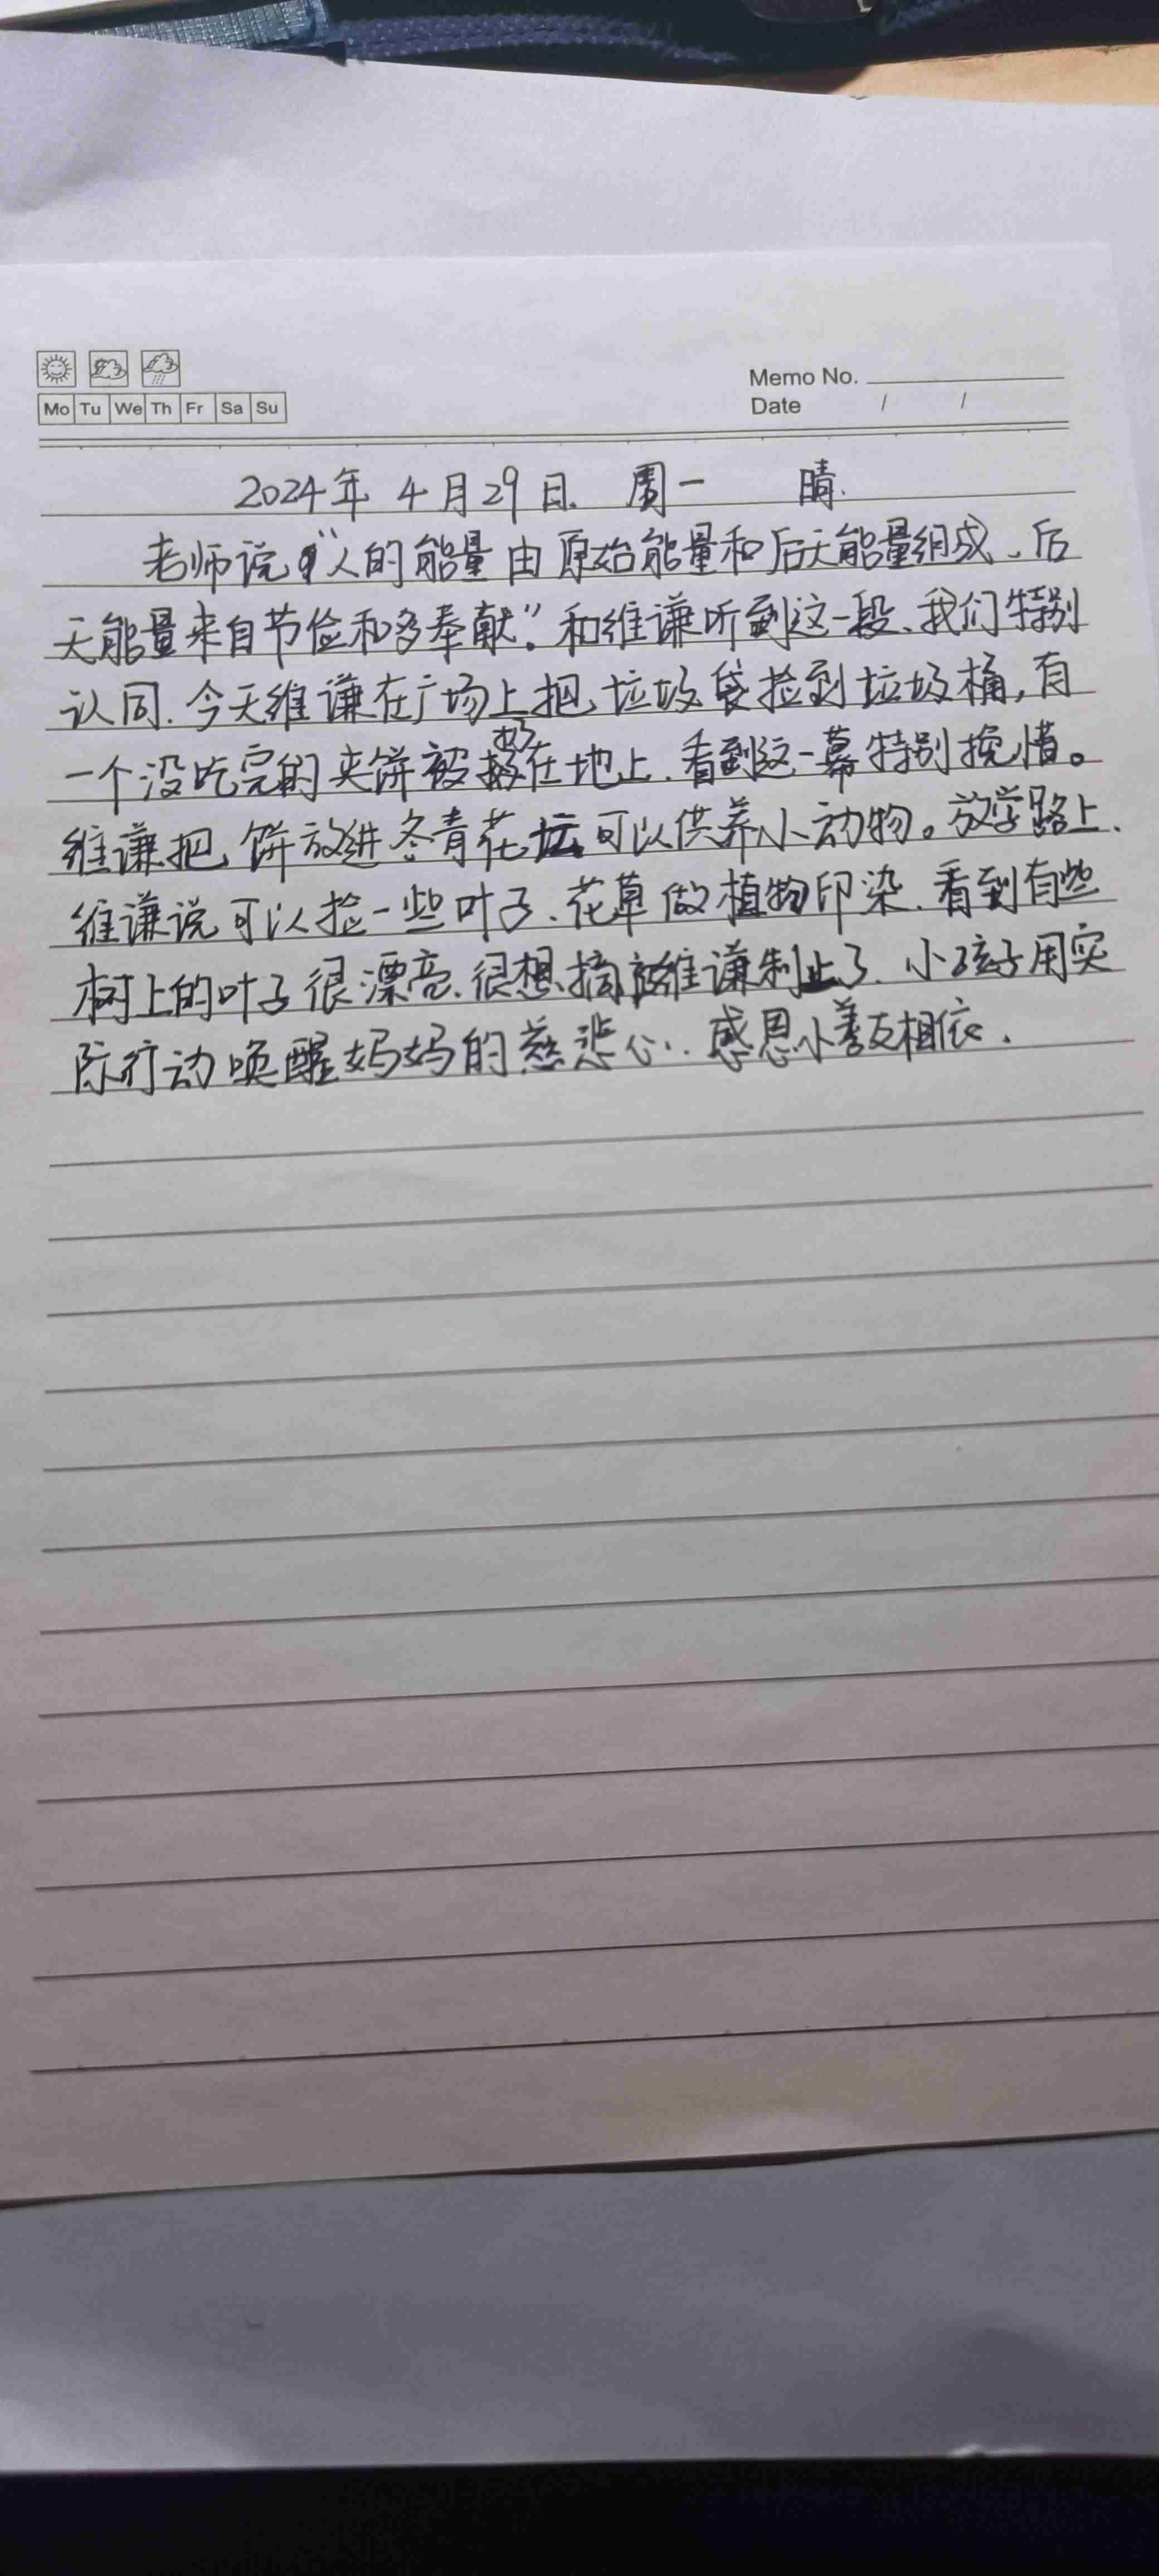 Memo No.
Mo Tu We Th Fr Sa Su
Date / /
2024年 4月29日. 周一 晴.
老师说“人的能量由原始能量和后天能量组成、后
天能量来自节俭和多奉献”。和维谦听到这一段、我们特别
认同. 今天维谦在广场上把垃圾袋捡到垃圾桶, 有
一个没吃完的夹饼被扔在地上. 看到这一幕特别挽惜。
维谦把饼放进冬青花坛可以供养小动物。放学路上.
维谦说可以捡一些叶子、花草做植物印染. 看到有些
树上的叶子很漂亮、很想摘被维谦制止了. 小孩子用实
际行动唤醒妈妈的慈悲心. 感恩小善友相依.